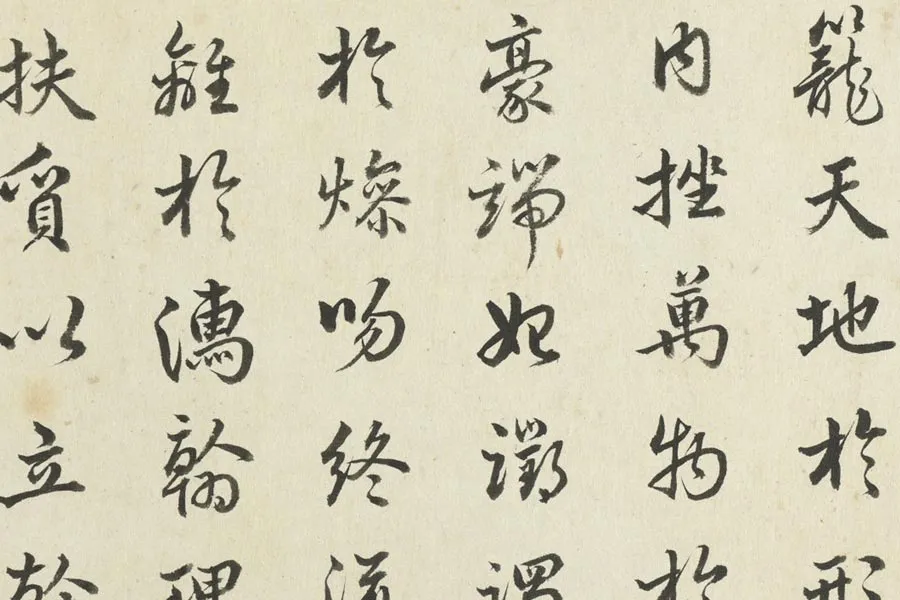 籠天地於形
内挫萬物於
豪端始躑躅
於燥吻終流
離於濡翰理
扶質以立幹